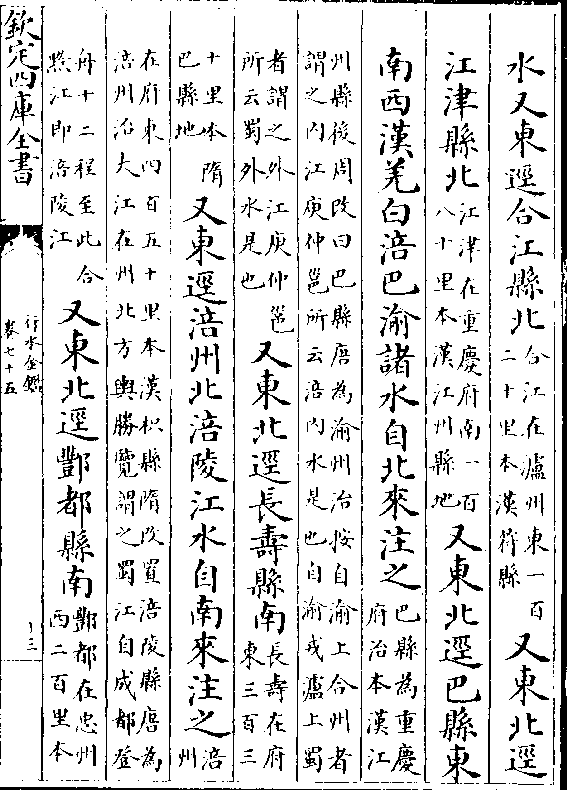 水又東逕合江縣北合江在瀘州東一百二十里本漢符縣又東北逕
江津縣北江津在重慶府南一百八十里本漢江州縣地又東北逕巴縣東
南西漢羌白涪巴渝諸水自北來注之巴縣為重慶府治本漢江
州縣後周改曰巴縣唐為渝州治按自渝上合州者謂之内江庾仲邕所云涪内水是也自渝戎瀘上蜀
者謂之外江庾仲邕所云蜀外水是也又東北逕長壽縣南長壽在府東三百三
十里本隋巴縣地又東逕涪州北涪陵江水自南來注之涪州
在府東四百五十里本漢枳縣隋改置涪陵縣唐為涪州治大江在州北方輿勝覽謂之蜀江自成都登
舟十二程至此合黔江即涪陵江又東北逕酆都縣南酆都在忠州西二百里本
欽定四庫全書
行水金鑑
卷七十五
十三